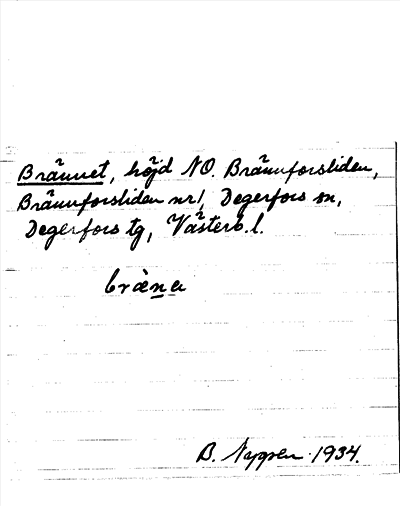 Brännet, höjd NO. Brännforsliden,
Brännforsliden nr 1, Degerfors sn,
Degerfors tg, Västerb. l.
bräna
B. 1934.